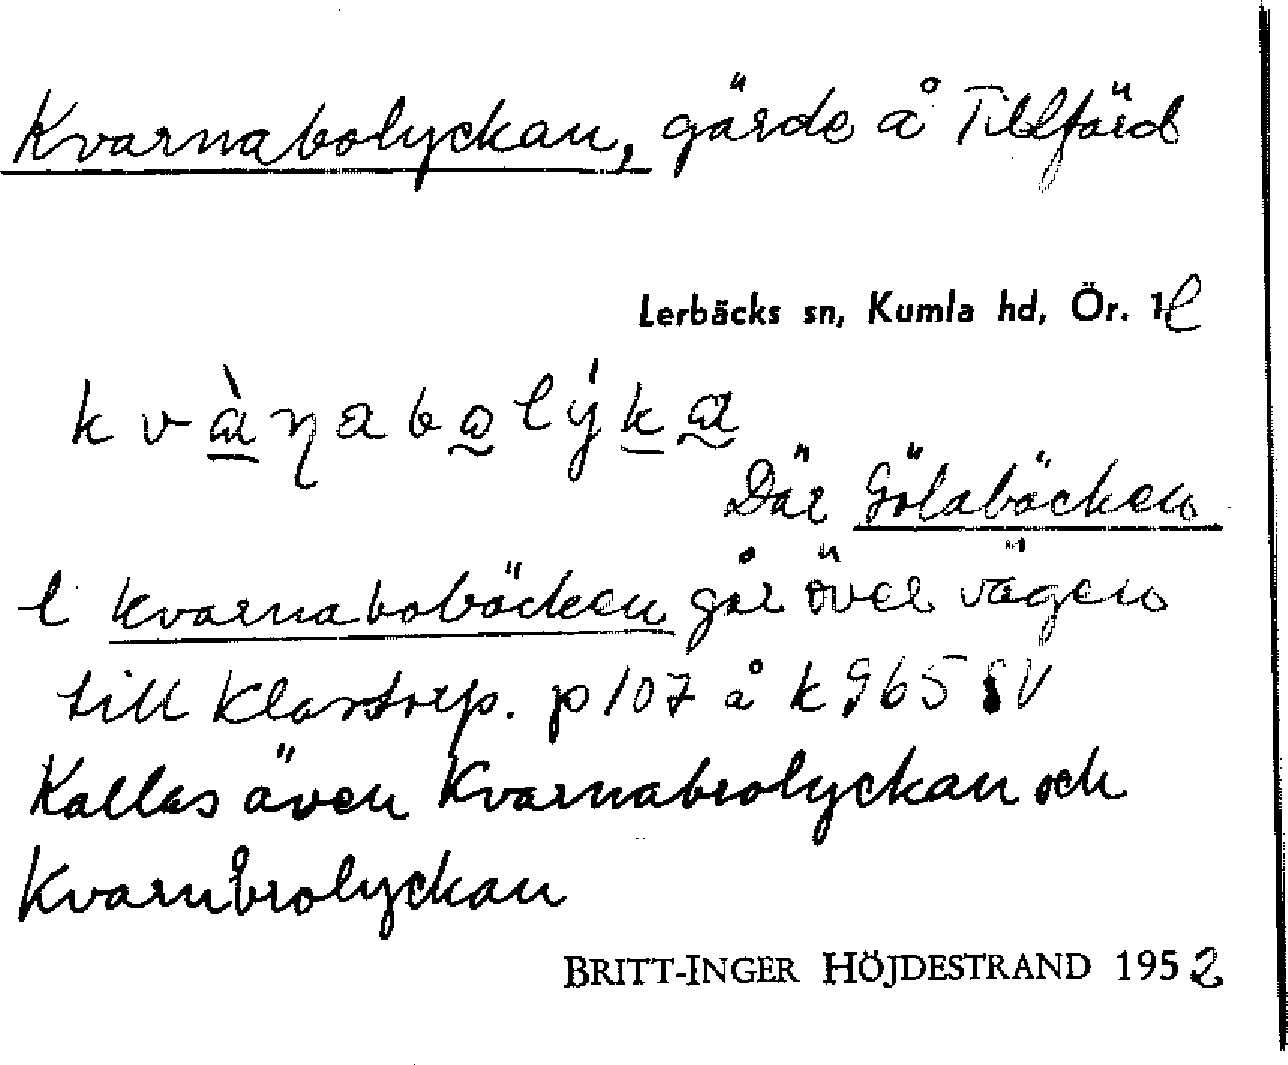 Kvarnabolyckan, gärde å Tillfärd
Lerbäcks sn, Kumla hd, Ör. 1 l
kvànabolýka
Där Gölabäcken
l Kvarnabobäcken går över vägen
till Klastorp. p 107 å k 965 SV
Kallas även Kvarnabrolyckan och
Kvarnbrolyckan
BRITT-INGER HÖJDESTRAND 1952